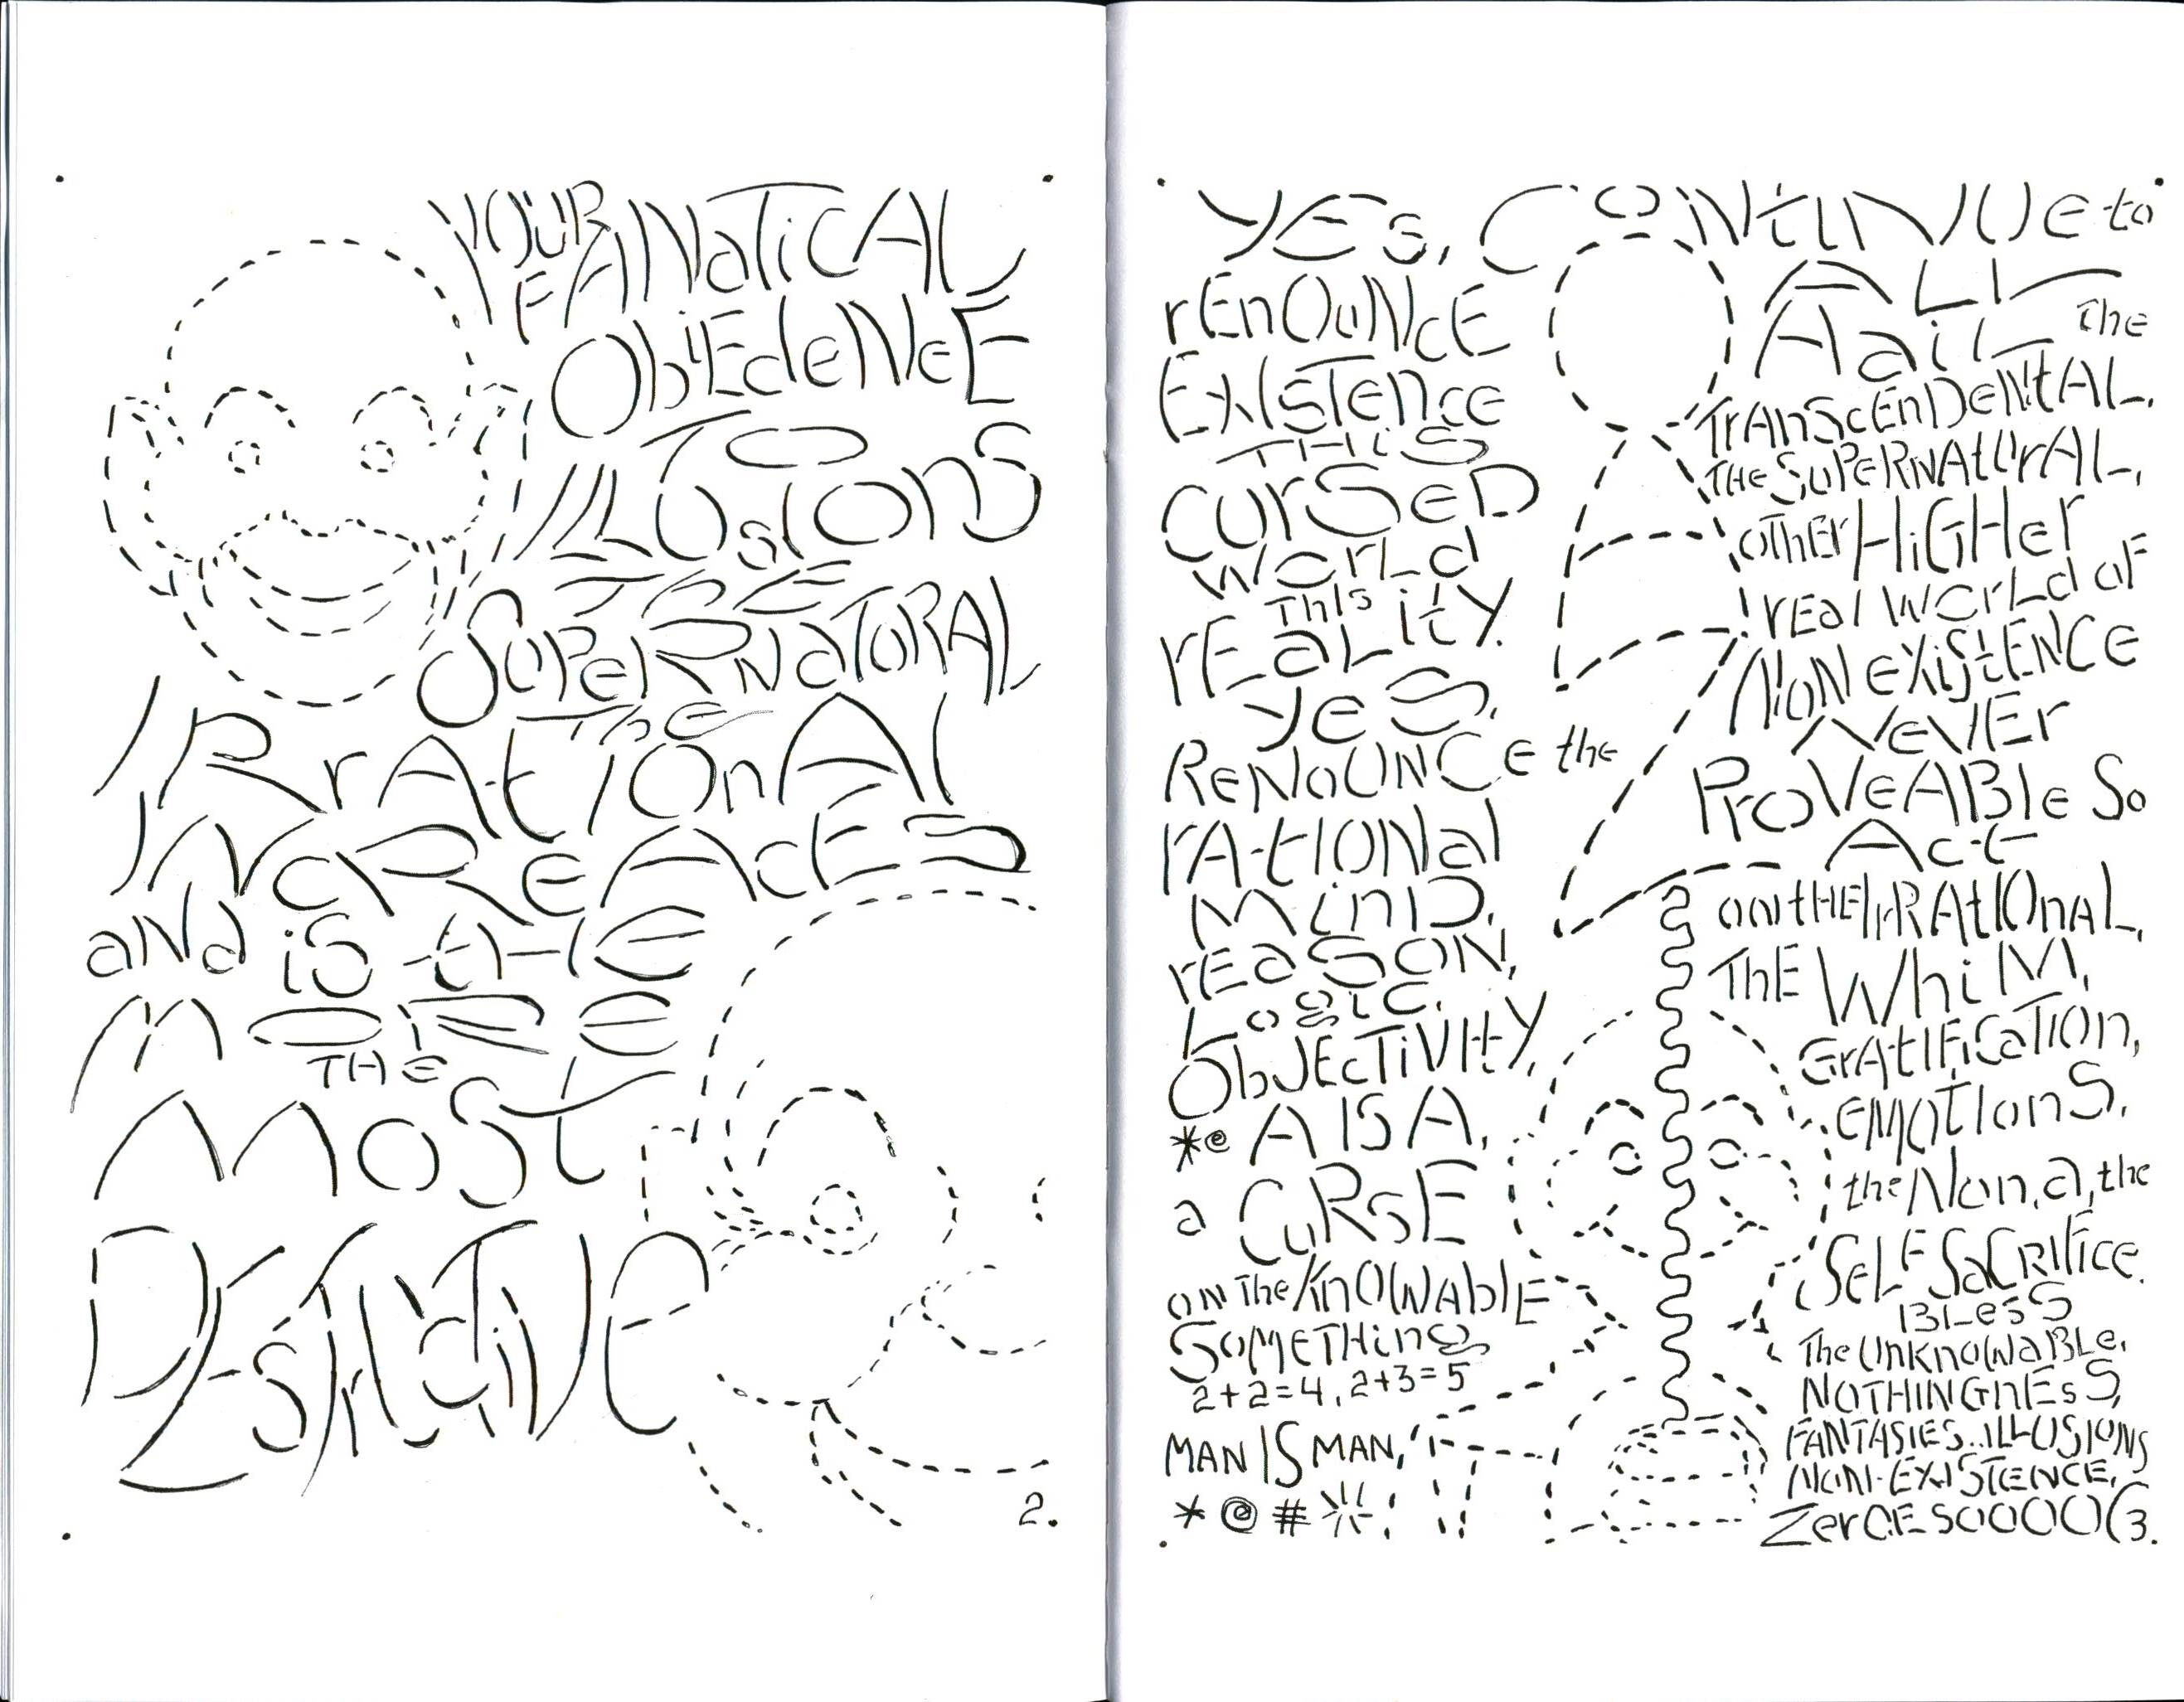 YOUR
FANATICAL
OBIEDENCE
TO
ILLUSIONS
THE
SUPERNATORAL
THE
IRRATIONAL
INCREACES
AND IS THE
MORE
THE
MOST
DESTRUCTIVE
2.
YES, CONTINUE to
RENOUNCE
EXISTENCE
THIS
CURSED
WORLD
THIS
REALITY.
YES,
RENOUNCE the
RATIONAL
MIND,
REASON,
LOGIC,
OBJECTIVITY,
*@ A IS A,
a CURSE
ON THE KNOWABLE
SOMETHING
2+2=4, 2+3=5
MAN IS MAN,
* @ #
ALL
HAIL THE
TRANSCENDENTAL,
THE SUPERNATURAL,
OTHER HIGHER
REAL WORLD OF
NON EXISTENCE
NEVER
PROVEABLE SO
ACT
ON THE IRRATIONAL,
THE WHIM,
GRATIFICATION,
EMOTIONS,
the Non.a, the
SELF SACRIFICE.
BLESS
The UNKNOWABLE,
NOTHINGNESS,
FANTASIES..ILLUSIONS
NON-EXISTENCE,
ZEROESOOOOO
3.